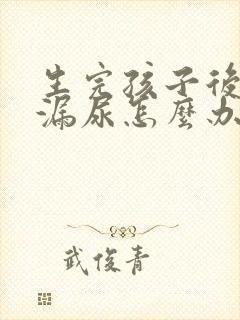 生完孩子後
漏尿怎麼办
武俊青